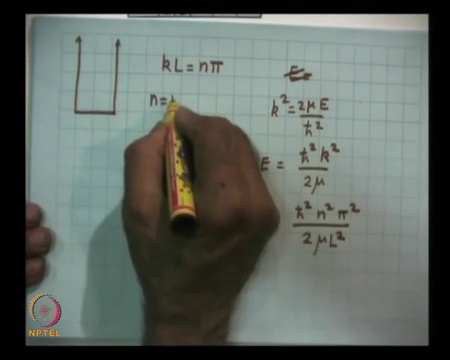 kL = nπ
n=
E=
k² = 2μE / ħ²
E = ħ² k² / 2μ
ħ² n² π² / 2μL²
NPTEL